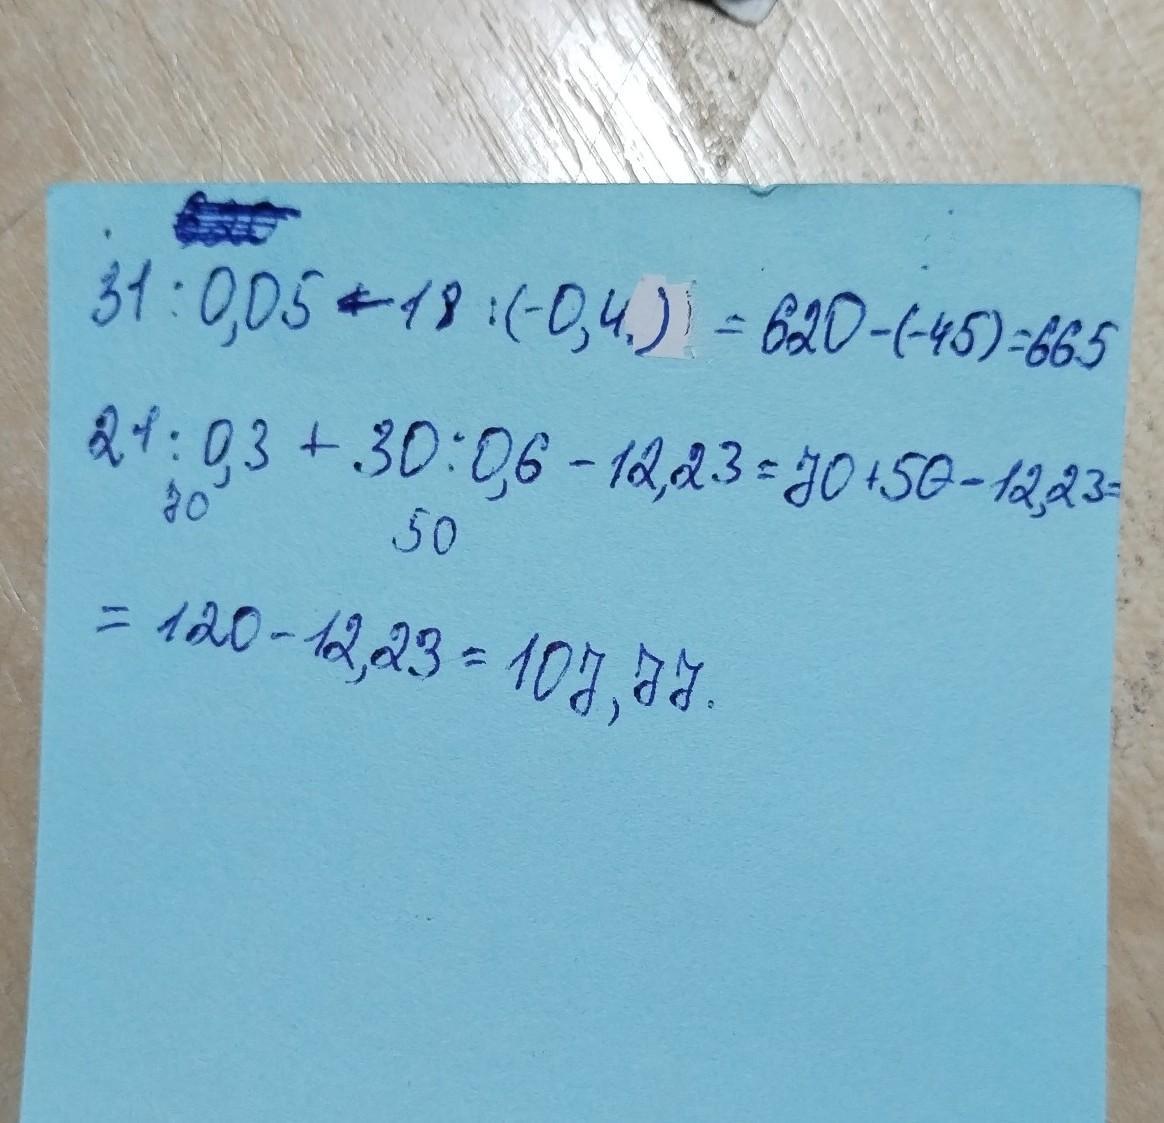 31 : 0,05 - 18 : (-0,4) = 620 - (-45) = 665
21 : 0,3 + 30 : 0,6 - 12,23 = 70 + 50 - 12,23 =
70 50
= 120 - 12,23 = 107,77.